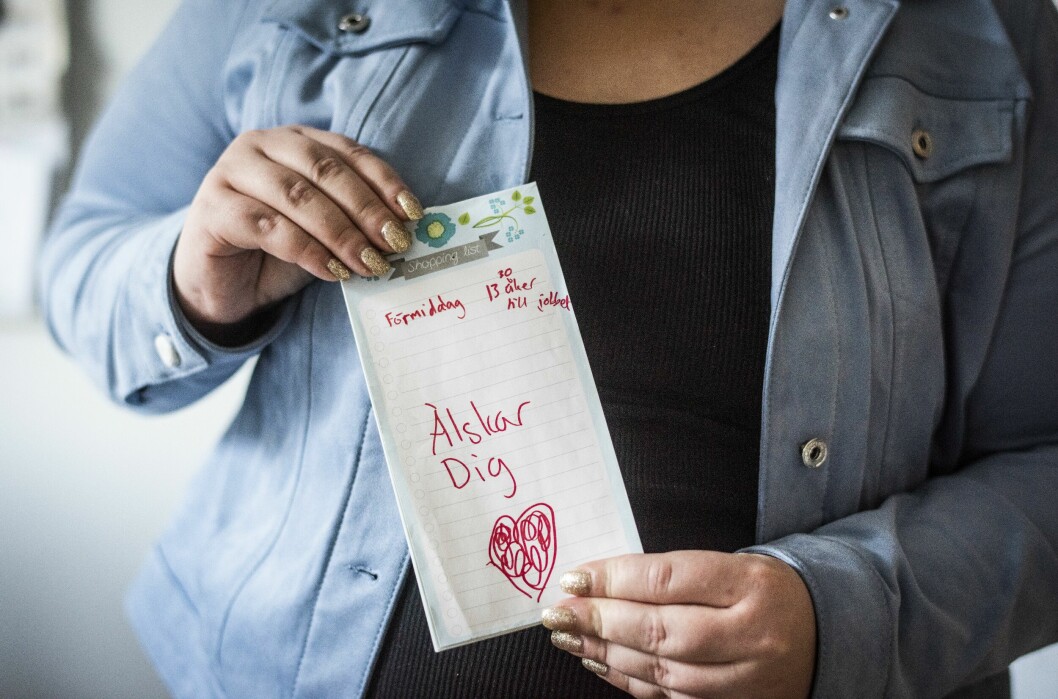 Shopping list
Förmiddag
13 30 åker
till jobbet
Älskar
Dig